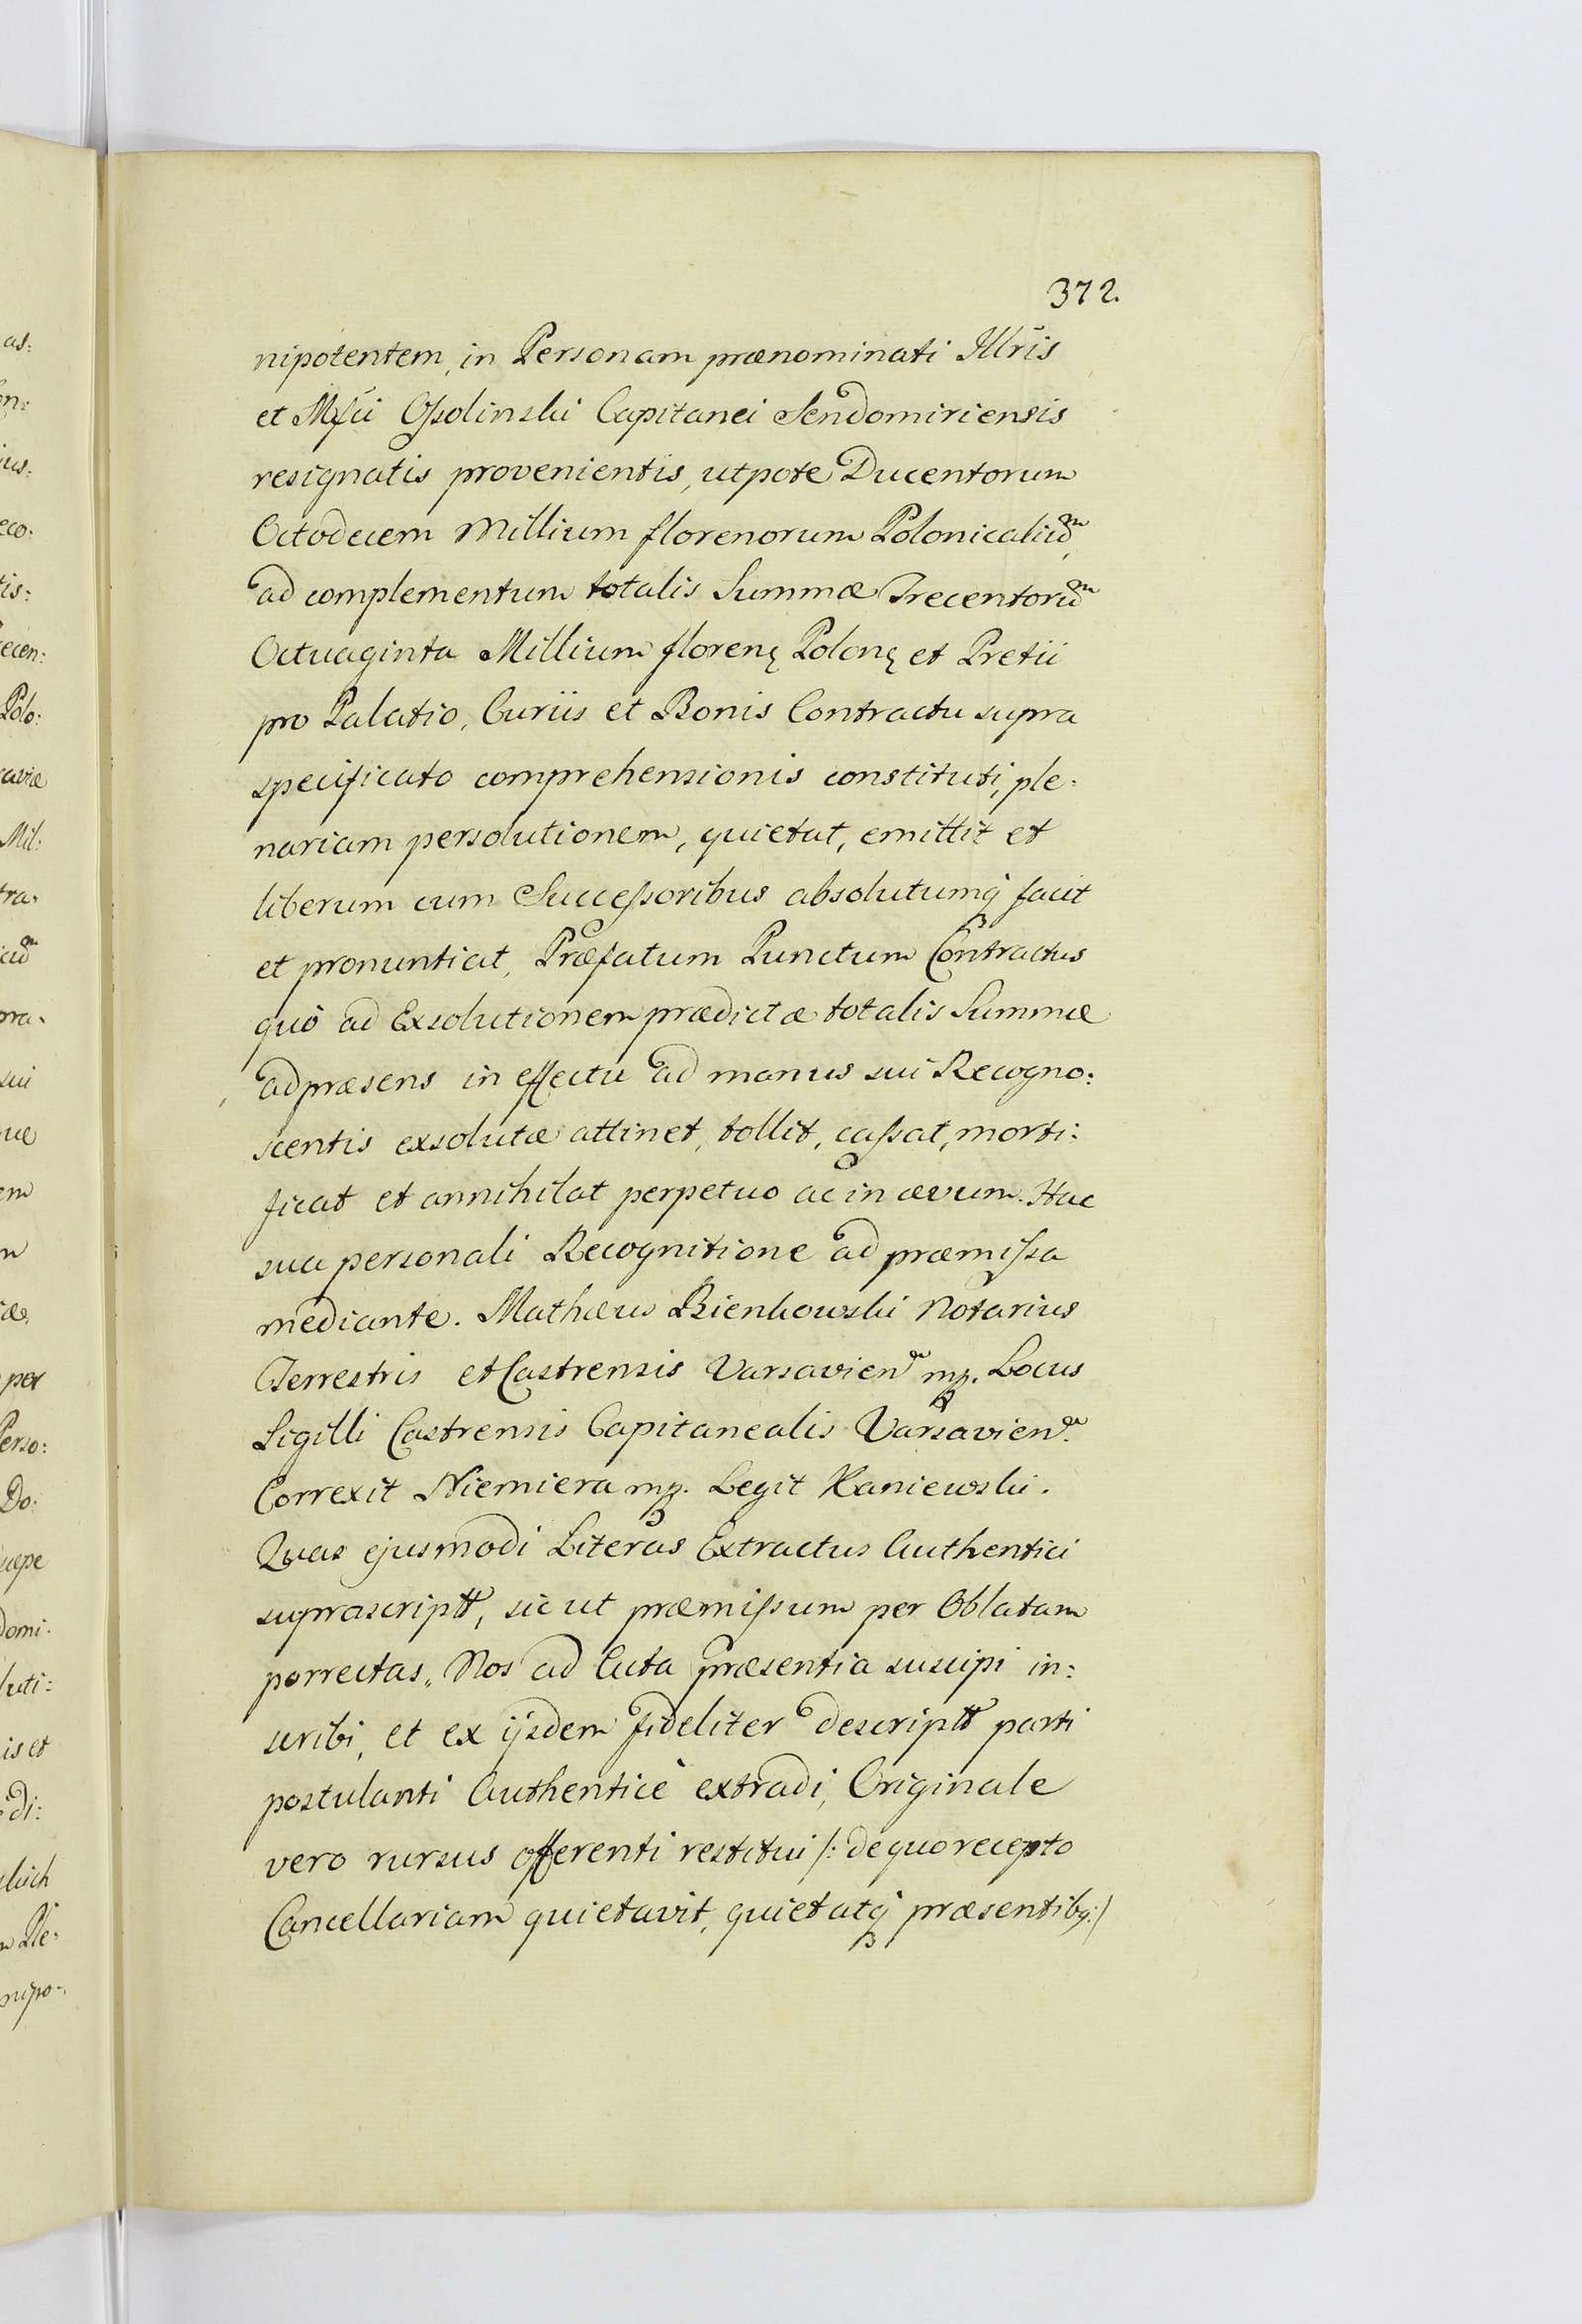 372.
nipotentem, in Personam prænominati Illr̃is
et Mfci Ossolinski Capitanei Sendomiriensis
resignatis provenientis, utpote Ducentorum
Octodecem Millium florenorum Polonicaliũm,
ad complementum totalis Summæ Trecentorũm
Octuaginta Millium florenę Polonę et Pretii
pro Palatio, Curiis et Bonis Contractu supra
specificato comprehensionis constituti, ple:
nariam persolutionem, quietat, emittit et
liberum cum Successoribus absolutumq́ facit
et pronuntiat, Præfatum Punctum Contractus
quò ad Exsolutionem prædictæ totalis Summæ
ad præsens in effectu ad manus sui Recogno:
scentis exsolutæ attinet, tollit, cassat, morti:
ficat et annihilat perpetuo ac in ævum. Hac
sua personali Recognitione ad præmissa
mediante. Mathæus Bienkowski Notarius
Terrestris et Castrensis Varsavien mp. Locus
Sigilli Castrensis Capitanealis Varsavien.
Correxit Niemiera mp. Legit Kaniewski.
Quas ejusmodi Literas Extractus Authentici
suprascriptt, sic ut præmissum per Oblatam
porrectas, Nos ad Acta præsentia suscipi in:
scribi, et ex ijsdem fideliter descriptt parti
postulanti Authenticè extradi, Originale
vero rursus offerenti restitui /: de quo recepto
Cancellariam quietavit, quietatq́ præsentibq:/
as:
eco.
tis:
ecen:
Polo:
aviæ
Mil:
tra.
sui
em
per
Perso:
Do:
domi.
luti:
is et
di:
nipo: